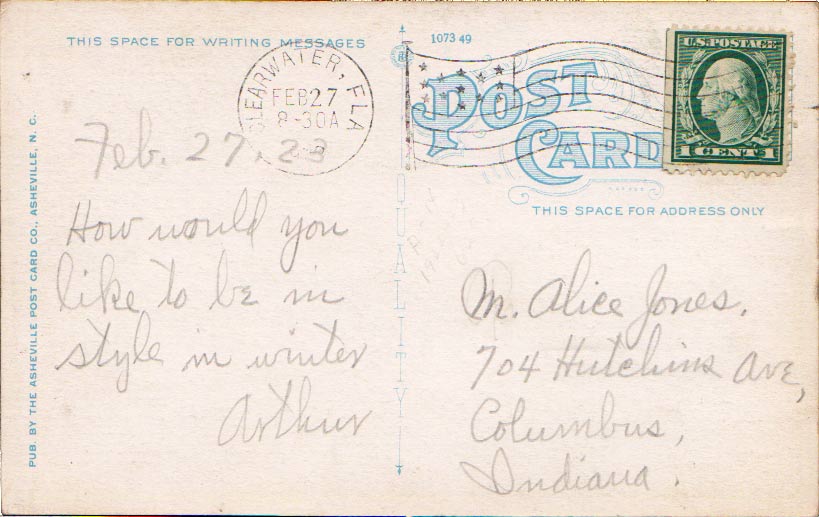 THIS SPACE FOR WRITING MESSAGES
1073 49
CLEARWATER, FLA
FEB 27
8-30A
U.S. POSTAGE
1 CENT 1
POST
CARD
THIS SPACE FOR ADDRESS ONLY
PUB. BY THE ASHEVILLE POST CARD CO., ASHEVILLE, N. C.
QUALITY
Feb. 27, 23
How would you
like to be in
style in winter
Arthur
M. Alice Jones.
704 Hutchins Ave,
Columbus,
Indiana.